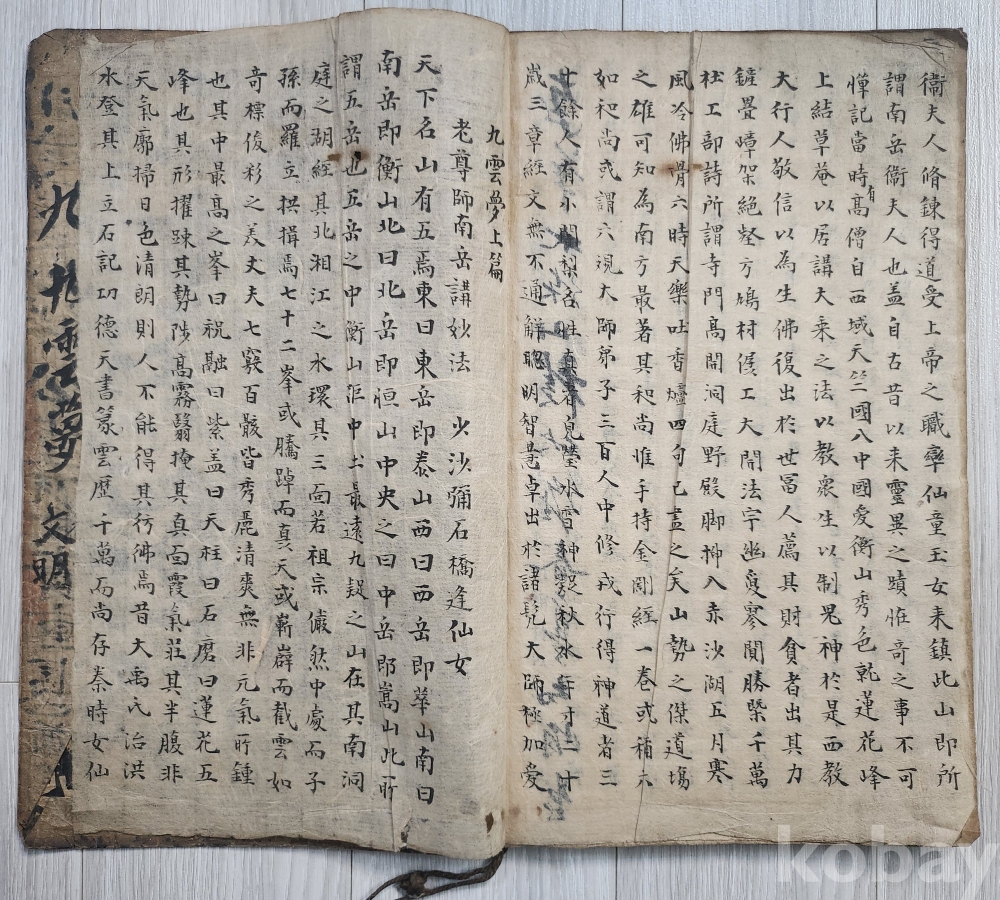 九雲夢上篇
老尊師南岳講妙法 少沙彌石橋逢仙女
天下名山有五焉東曰東岳即泰山西曰西岳即華山南曰
南岳即衡山北曰北岳即恒山中央之曰中岳即嵩山此所
謂五岳也五岳之中衡山距中土最遠九疑之山在其南洞
庭之湖經其北湘江之水環其三面若祖宗儼然中處而子
孫而羅立拱揖焉七十二峯或騰踔而真天或嶄嶭而截雲如
奇標俊彩之美丈夫七竅百骸皆秀麗清爽無非元氣所鍾
也其中最高之峯曰祝融曰紫盖曰天柱曰石磨曰蓮花五
峰也其形擢踈其勢陟高霧翳掩其真面霞氣莊其半腹非
天氣廓掃日色清朗則人不能得其彷彿焉昔大禹氏治洪
水登其上立石記功德天書篆雲歷千萬而尚存秦時女仙
九雲夢 文明
衛夫人脩鍊得道受上帝之職率仙童玉女来鎮此山即所
謂南岳衛夫人也盖自古昔以来靈異之蹟恠奇之事不可
憚記當時有高僧自西域天竺國入中國愛衡山秀色乾蓮花峰
上結草菴以居講大乘之法以教衆生以制鬼神於是西教
大行人敬信以為生佛復出於世冨人薦其財貪者出其力
鏟疊嶂架絕壑方鳩村僝工大開法宇幽夐寥閴勝槩千萬
杜工部詩所謂寺門高開洞庭野殿脚揷入赤沙湖五月寒
風冷佛骨六時天樂吐香爐四句已盡之矣山勢之傑道塲
之雄可知為南方最著其和尚惟手持金剛經一卷或補六
如和尚或謂六現大師弟子三百人中修戒行得神道者三
十餘人有小闍梨名性真者皃瑩氷雪神凝秋水年才二十
歲三章經文無不通解聰明智慧卓出於諸髡大師極加愛
kobay